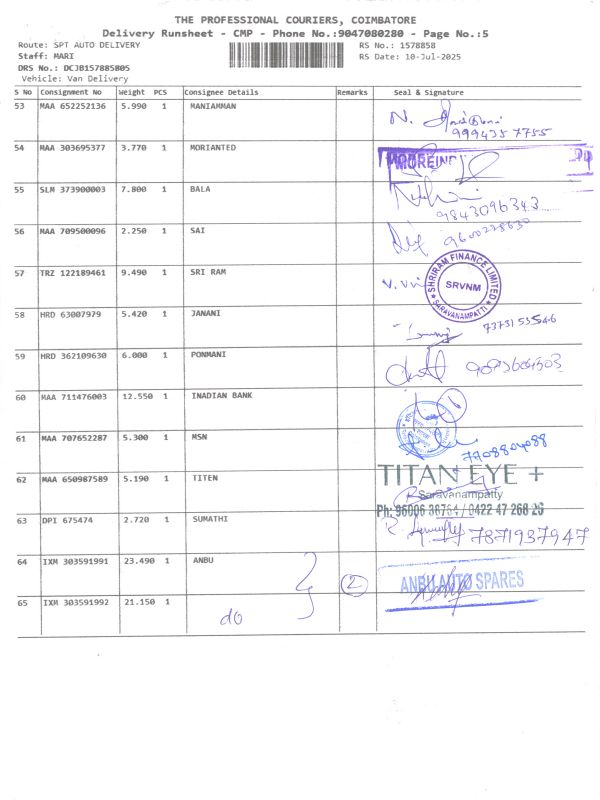 THE PROFESSIONAL COURIERS, COIMBATORE
Delivery Runsheet - CMP - Phone No.:9047080280 - Page No.:5
Route: SPT AUTO DELIVERY RS No.: 1578858
Staff: MARI RS Date: 10-Jul-2025
DRS No.: DCJB157885805
Vehicle: Van Delivery
S No Consignment No Weight PCS Consignee Details Remarks Seal & Signature
53 MAA 652252136 5.990 1 MANIAMMAN
N.
9994357755
54 MAA 303695377 3.770 1 MORIANTED
55 SLM 373900003 7.800 1 BALA
9843096343
56 MAA 709500096 2.250 1 SAI
9600228630
57 TRZ 122189461 9.490 1 SRI RAM
SHRIRAM FINANCE LIMITED
SRVNM
SARAVANAMPATTI
58 HRD 63007979 5.420 1 JANANI
7373153546
59 HRD 362109630 6.000 1 PONMANI
60 MAA 711476003 12.550 1 INADIAN BANK
61 MAA 707652287 5.300 1 MSN
7708804088
62 MAA 650987589 5.190 1 TITEN
TITAN EYE +
Saravanampatty
Ph: 96006 38764 / 0422 47 268 26
63 DPI 675474 2.720 1 SUMATHI
7871937947
64 IXM 303591991 23.490 1 ANBU
2
ANBU AUTO SPARES
65 IXM 303591992 21.150 1
do